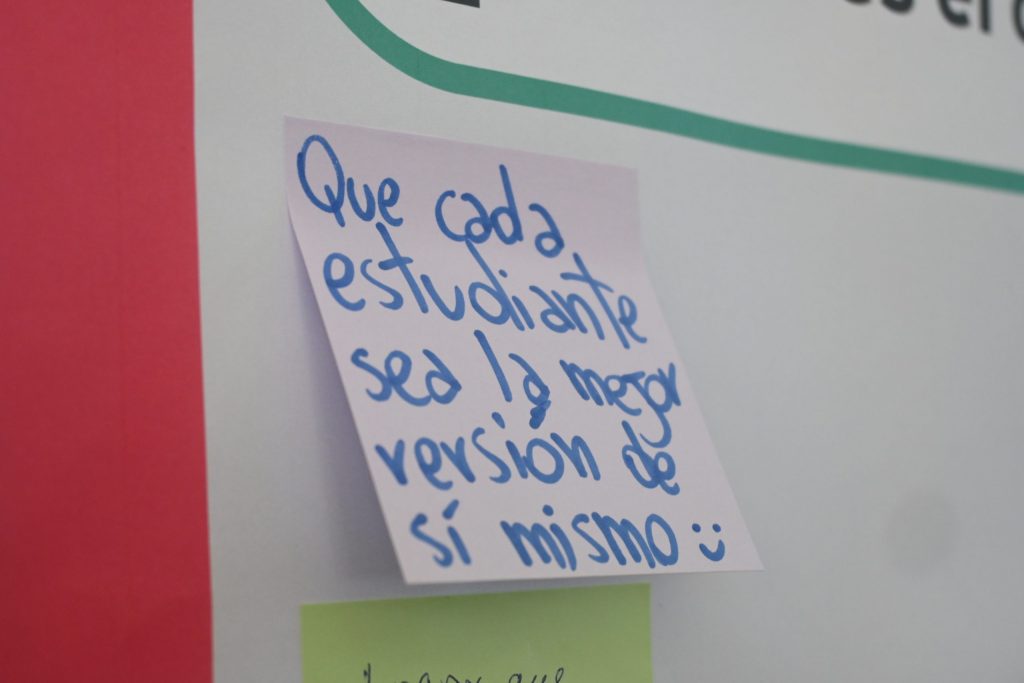 es el
Que cada
estudiante
sea la mejor
versión de
sí mismo :)
que